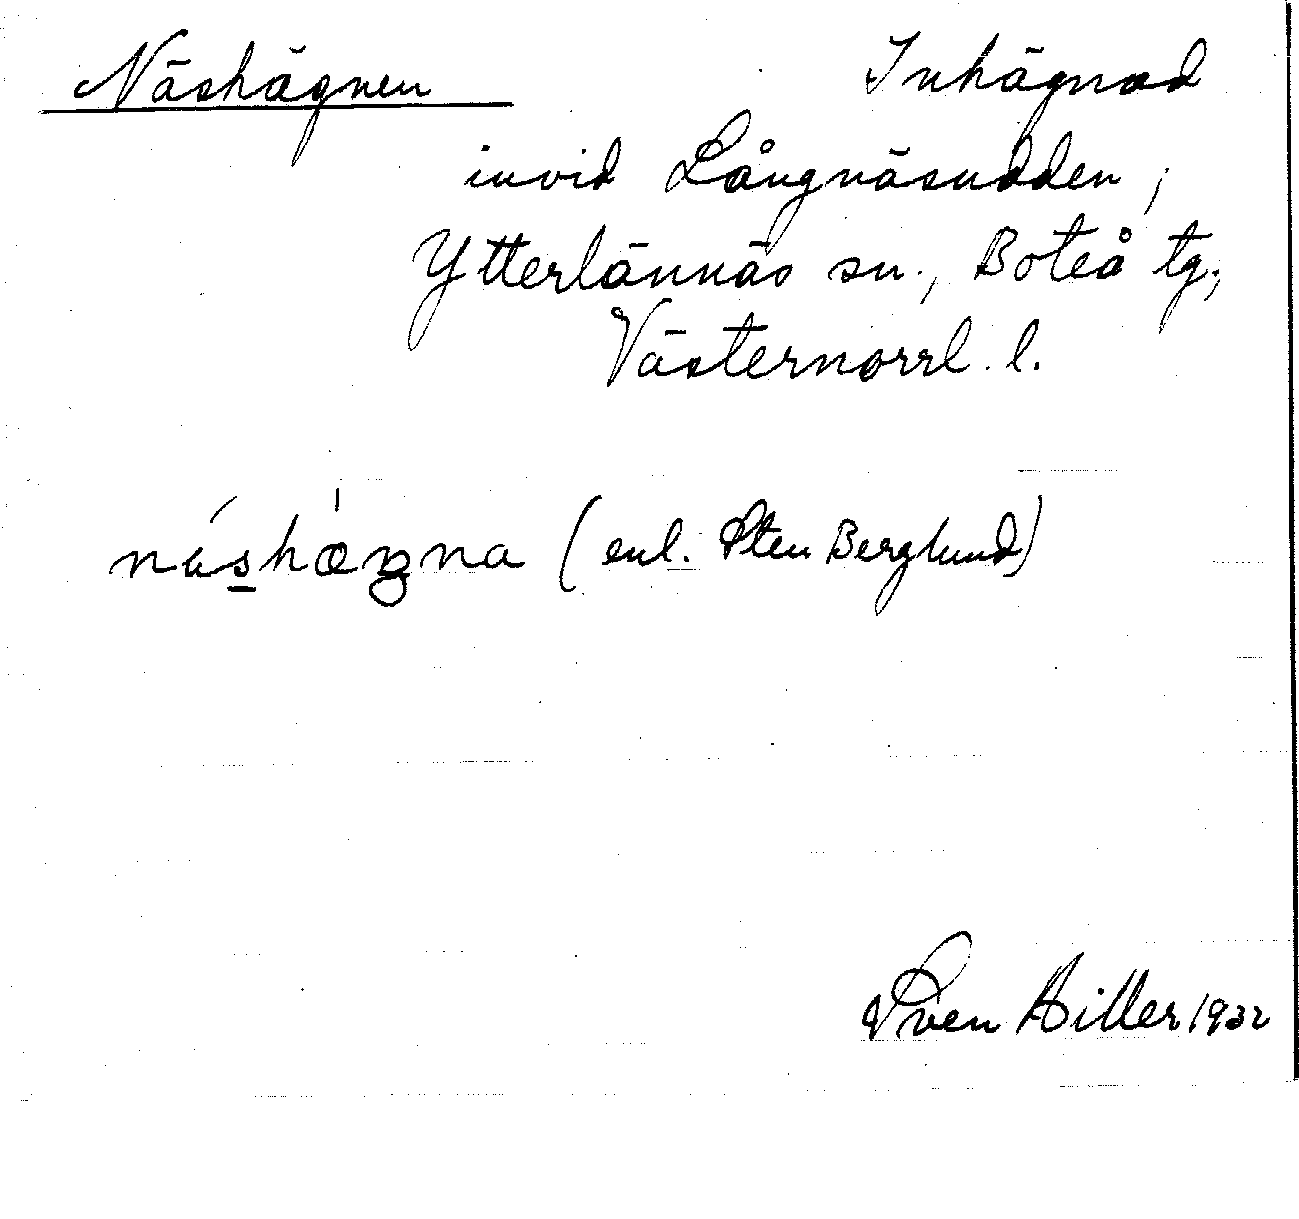 Näshägnen Inhägnad
invid Långnäsudden,
Ytterlännäs sn., Boteå tg.,
Västernorrl. l.
náshægna (enl. Sten Berglund)
Sven Hiller 1932